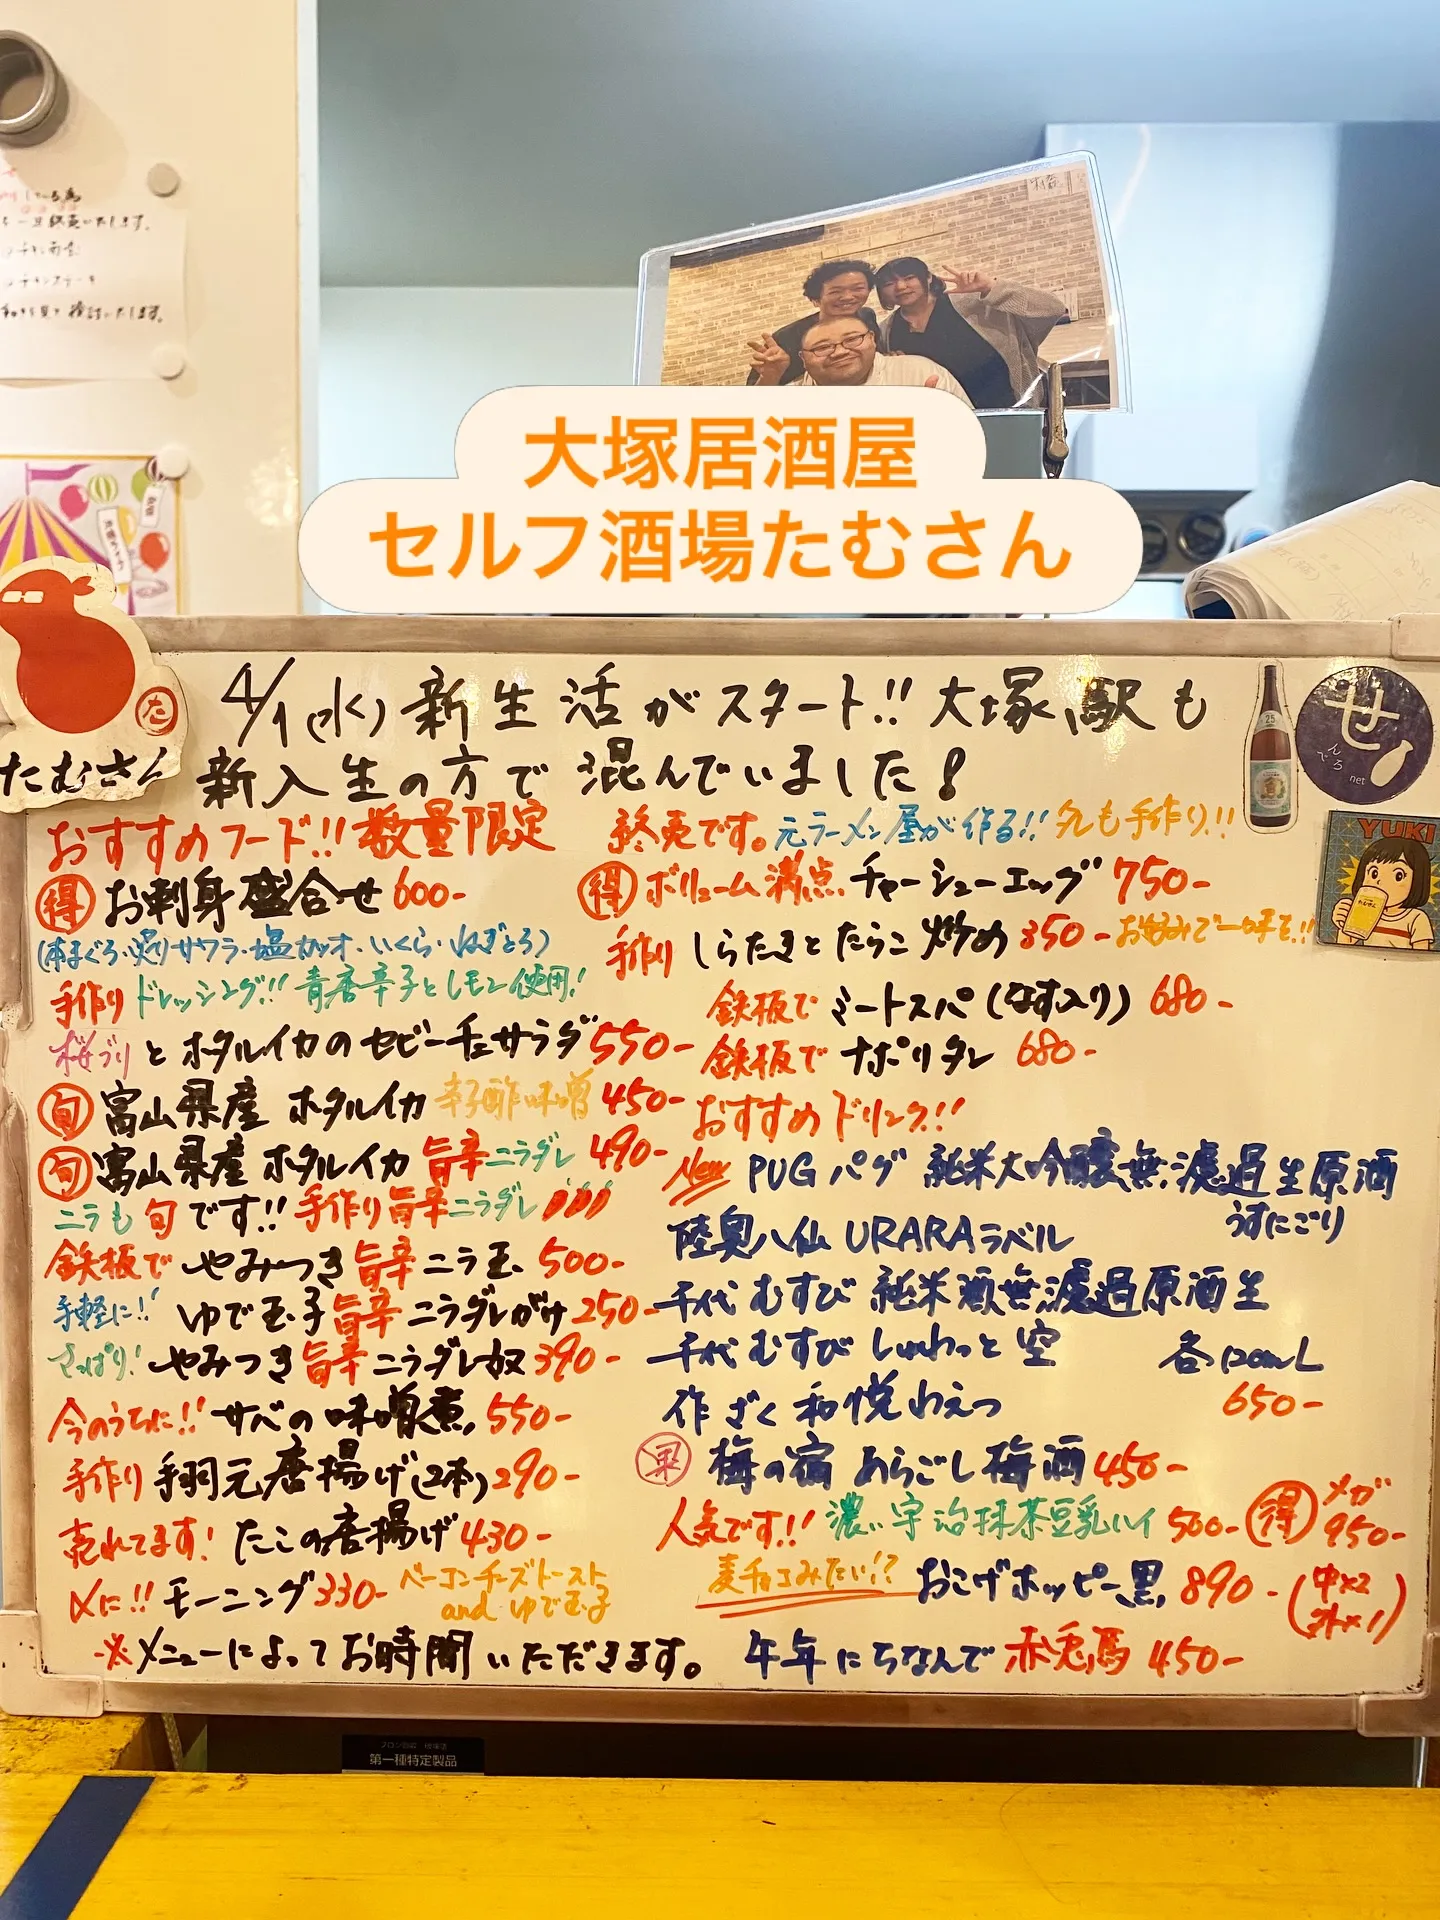 大塚居酒屋
セルフ酒場たむさん
たむさん
た
4/1(水)新生活がスタート!!大塚駅も
新入生の方で混んでいました!
せんべろnet
YUKI
おすすめフード!!数量限定
得 お刺身盛合せ 600-
(本まぐろ・炙りサワラ・塩カツオ・いくら・ねぎとろ)
手作りドレッシング!!青唐辛子とレモン使用!
桜ブリとホタルイカのセビーチェサラダ 550-
旬 富山県産 ホタルイカ 辛子酢味噌 450-
旬 富山県産 ホタルイカ 旨辛ニラダレ 490-
ニラも旬です!!手作り旨辛ニラダレ
鉄板で やみつき旨辛ニラ玉 500-
手軽に!! ゆで玉子旨辛ニラダレがけ 250-
さっぱり! やみつき旨辛ニラダレ奴 390-
今のうちに!! サバの味噌煮 550-
手作り 手羽元唐揚げ(2本) 290-
売れてます! たこの唐揚げ 430-
〆に!! モーニング 330- ベーコンチーズトースト
and ゆで玉子
※メニューによってお時間いただきます。
終売です。元ラーメン屋が作る!!タレも手作り!!
得 ボリューム満点 チャーシューエッグ 750-
手作り しらたきとたらこ炒め 350- お好みで一味を!!
鉄板で ミートスパ(なす入り) 680-
鉄板で ナポリタン 680-
おすすめドリンク!!
New PUG パグ 純米大吟醸無濾過生原酒
うすにごり
陸奥八仙 URARAラベル
千代むすび 純米酒無濾過原酒生
千代むすび しゅわっと空
各120mL
作 ざく 和悦 わえつ
650-
果 梅の宿 あらごし梅酒 450-
人気です!! 濃い宇治抹茶豆乳ハイ 500- 得 メガ 950-
麦チョコみたい!? おこげホッピー黒 890- (中×2 外×1)
午年にちなんで 赤兎馬 450-
第一種特定製品